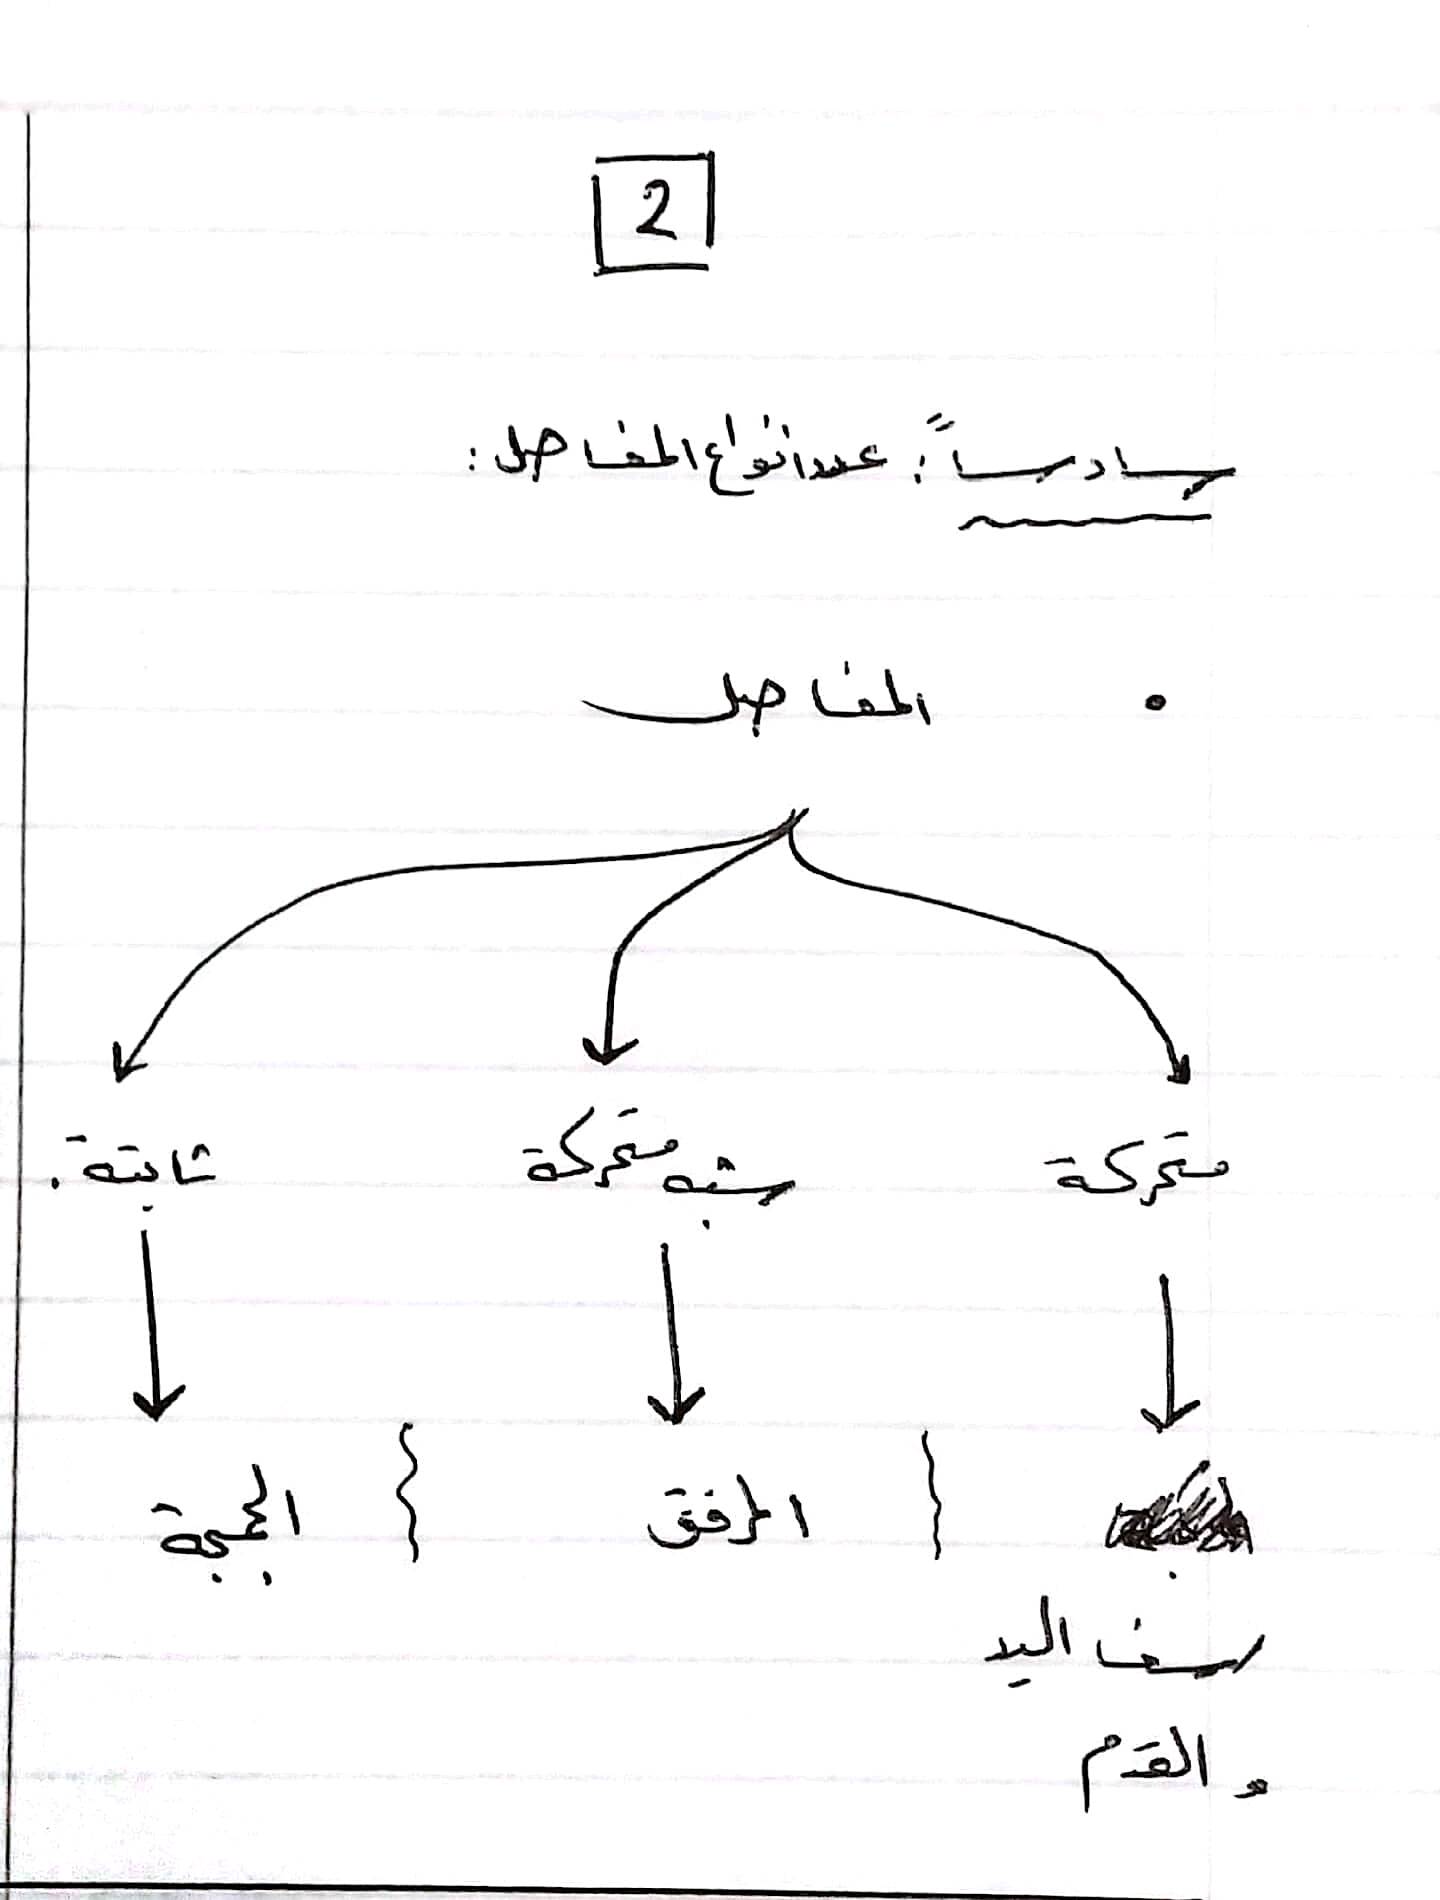 2
سادساً: عدد انواع المفاصل:
• المفاصل
متحركة شبه متحركة ثابتة.
المرفق الجمجمة
رسغا اليد
و القدم